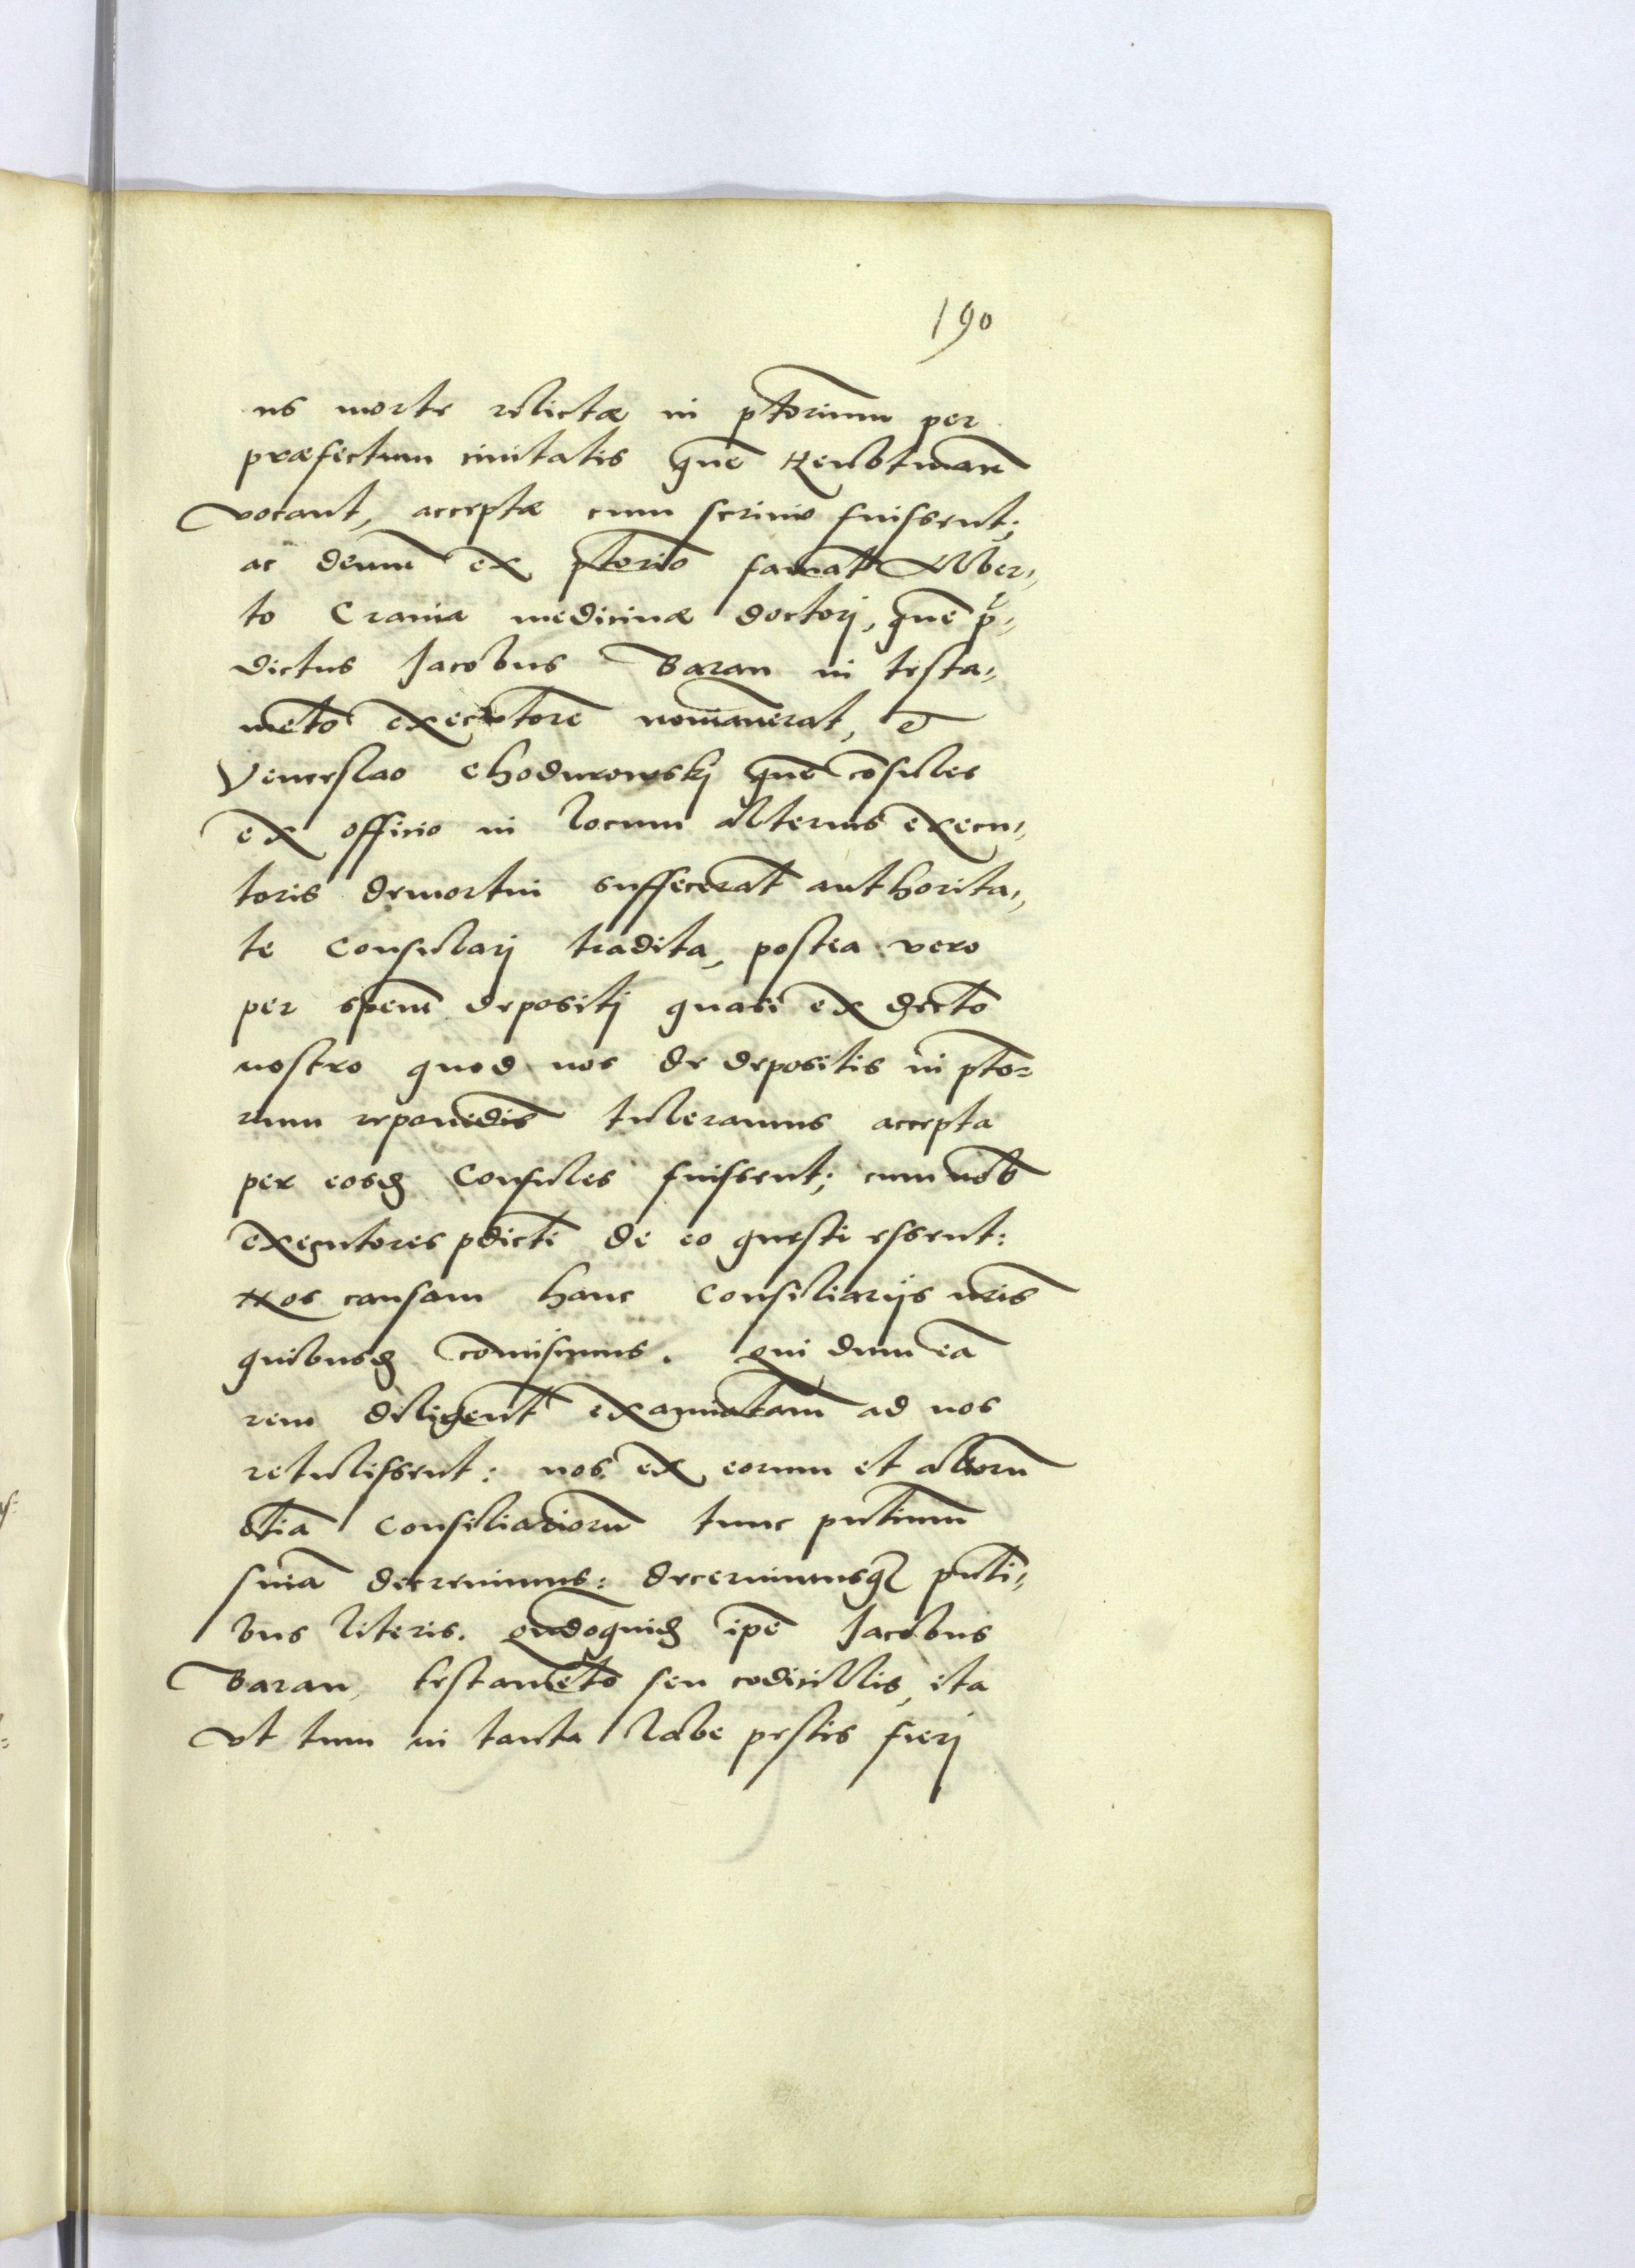 190
us morte relictæ in ptorium per
præfectum civitatis quē Heubtman̄
vocant, acceptæ cum scrinio fuissent;
ac demū ex ptorio famat Alber„
to Crania medicinæ doctorj, quē p„
dictus Jacobus Baran in testa„
mēto executorē nomīaverat, et
Venceslao Chodurowskj quē cōsules
ex officio in locum alterius execu„
toris demortui suffecerāt authorita„
te consularj tradita, postea vero
per speciem depositj quasi ex decto
nostro quod nos de depositis in pto=
rium reponēdis tuleramus accepta
per eosdē Consules fuissent; cum nob
executores pdicti de eo questi essent:
Nos causam hanc Consiliarijs nris
quibusdā comīsimus. qui dum eā
rem diligent examīatam ad nos
retulissent: nos ex eorum et aliorū
etiā consiliariorū tunc pntium
snia decrevimus: decernimusq pnti„
bus literis. qndoquidē ipse Jacobus
Baran, testamēto seu codicillis, ita
vt tum in tanta labe pestis fierj